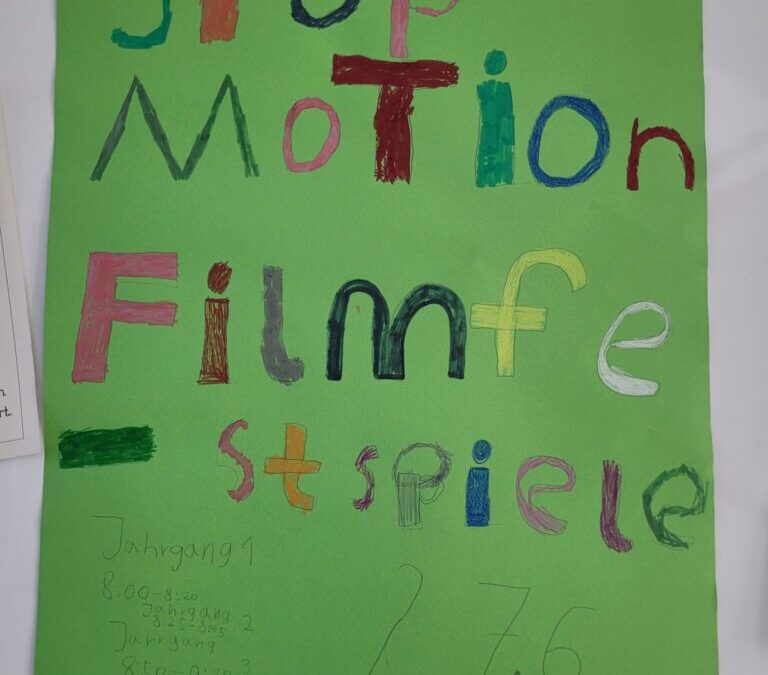 Stop
MoTion
Filmfe
- stspiele
Jahrgang 1
8:00-8:20
Jahrgang 2
8:25-8:45
Jahrgang 3
7.6
rt.